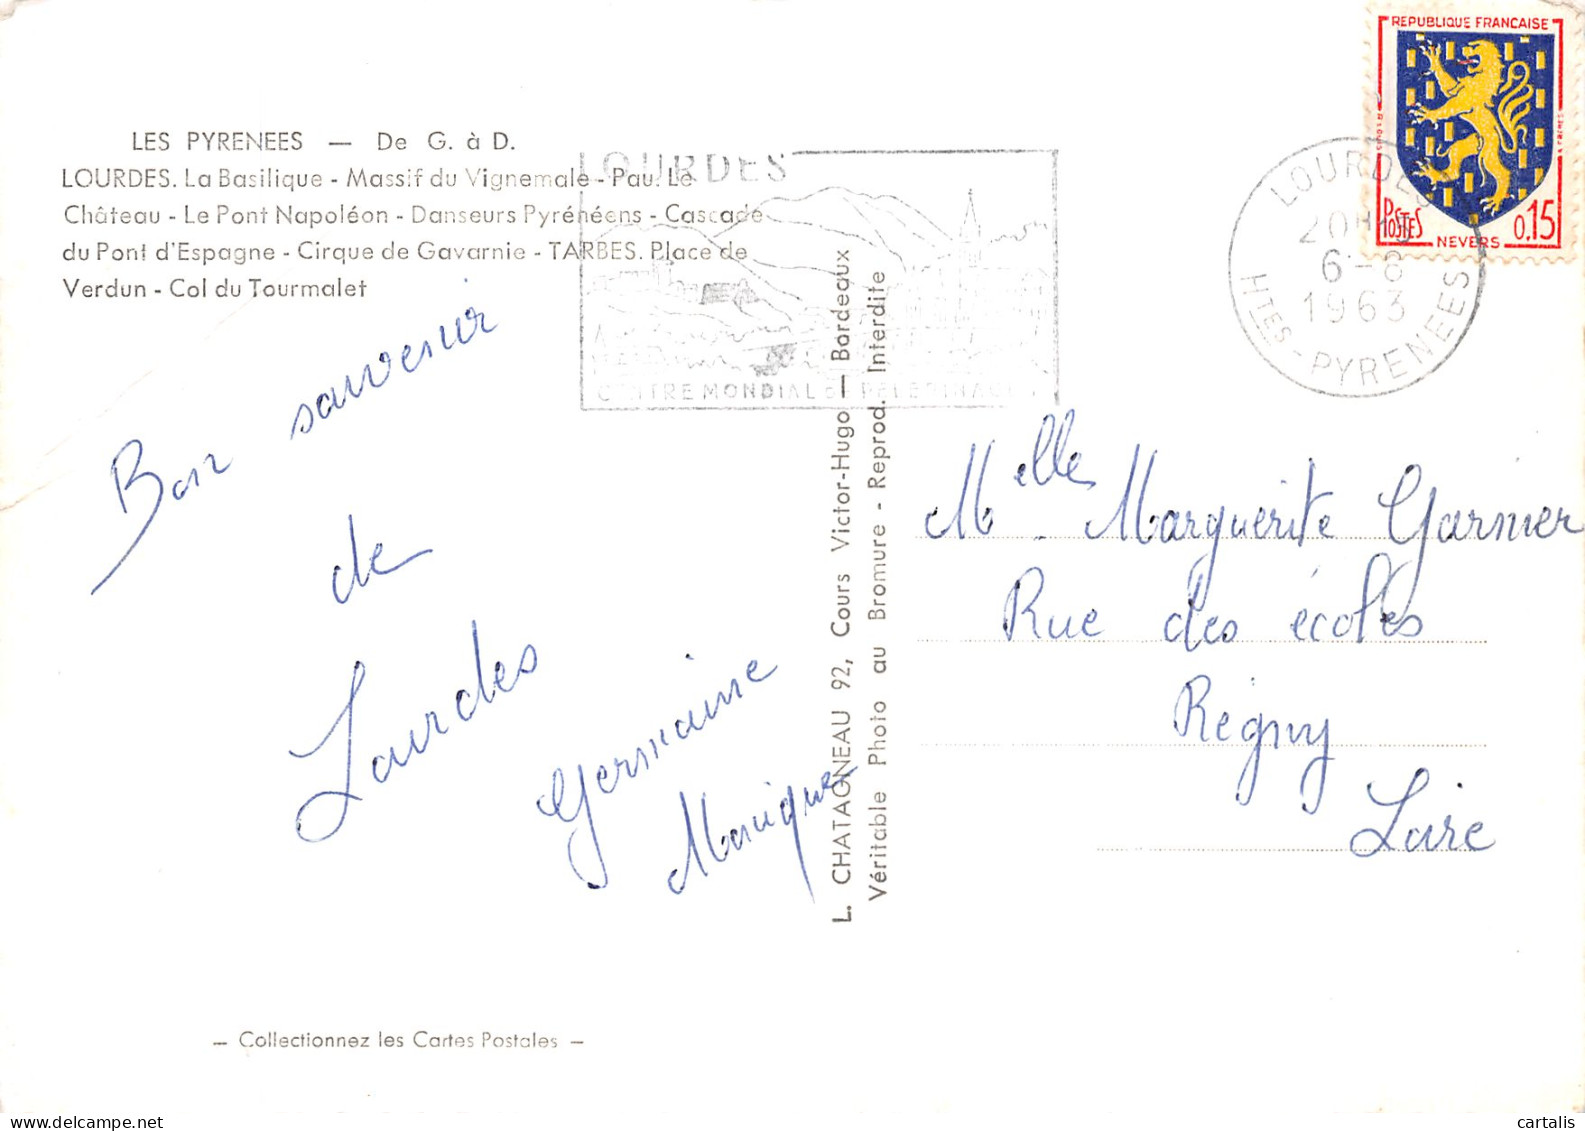 LES PYRENEES — De G. à D.
LOURDES. La Basilique - Massif du Vignemale - Pau. Le
Château - Le Pont Napoléon - Danseurs Pyrénéens - Cascade
du Pont d'Espagne - Cirque de Gavarnie - TARBES. Place de
Verdun - Col du Tourmalet
Bon souvenir
de
Lourdes
Germaine
Monique
— Collectionnez les Cartes Postales —
L. CHATAGNEAU 92, Cours Victor-Hugo — Bordeaux
Véritable Photo au Bromure - Reprod. Interdite
LOURDES
CENTRE MONDIAL DE PELERINAGE
LOURDES
20H
6-8
1963
HTES-PYRENEES
REPUBLIQUE FRANCAISE
POSTES
NEVERS
0,15
Melle Marguerite Garnier
Rue des écoles
Régny
Loire
cartalis